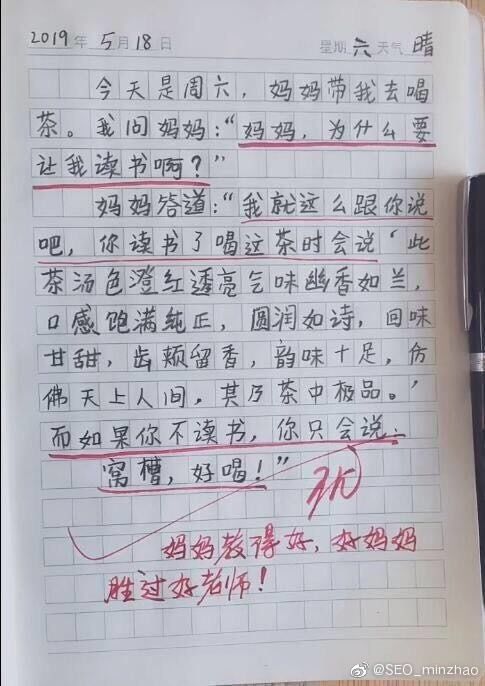 2019年5月18日 星期六天气晴
今天是周六，妈妈带我去喝
茶。我问妈妈：“妈妈，为什么要
让我读书啊？”
妈妈答道：“我就这么跟你说
吧，你读书了喝这茶时会说‘此
茶汤色澄红透亮气味幽香如兰，
口感饱满纯正，圆润如诗，回味
甘甜，齿颊留香，韵味十足，仿
佛天上人间，其乃茶中极品。’
而如果你不读书，你只会说：
窝槽，好喝！”
妈妈教得好，好妈妈
胜过好老师！
@SEO_minzhao